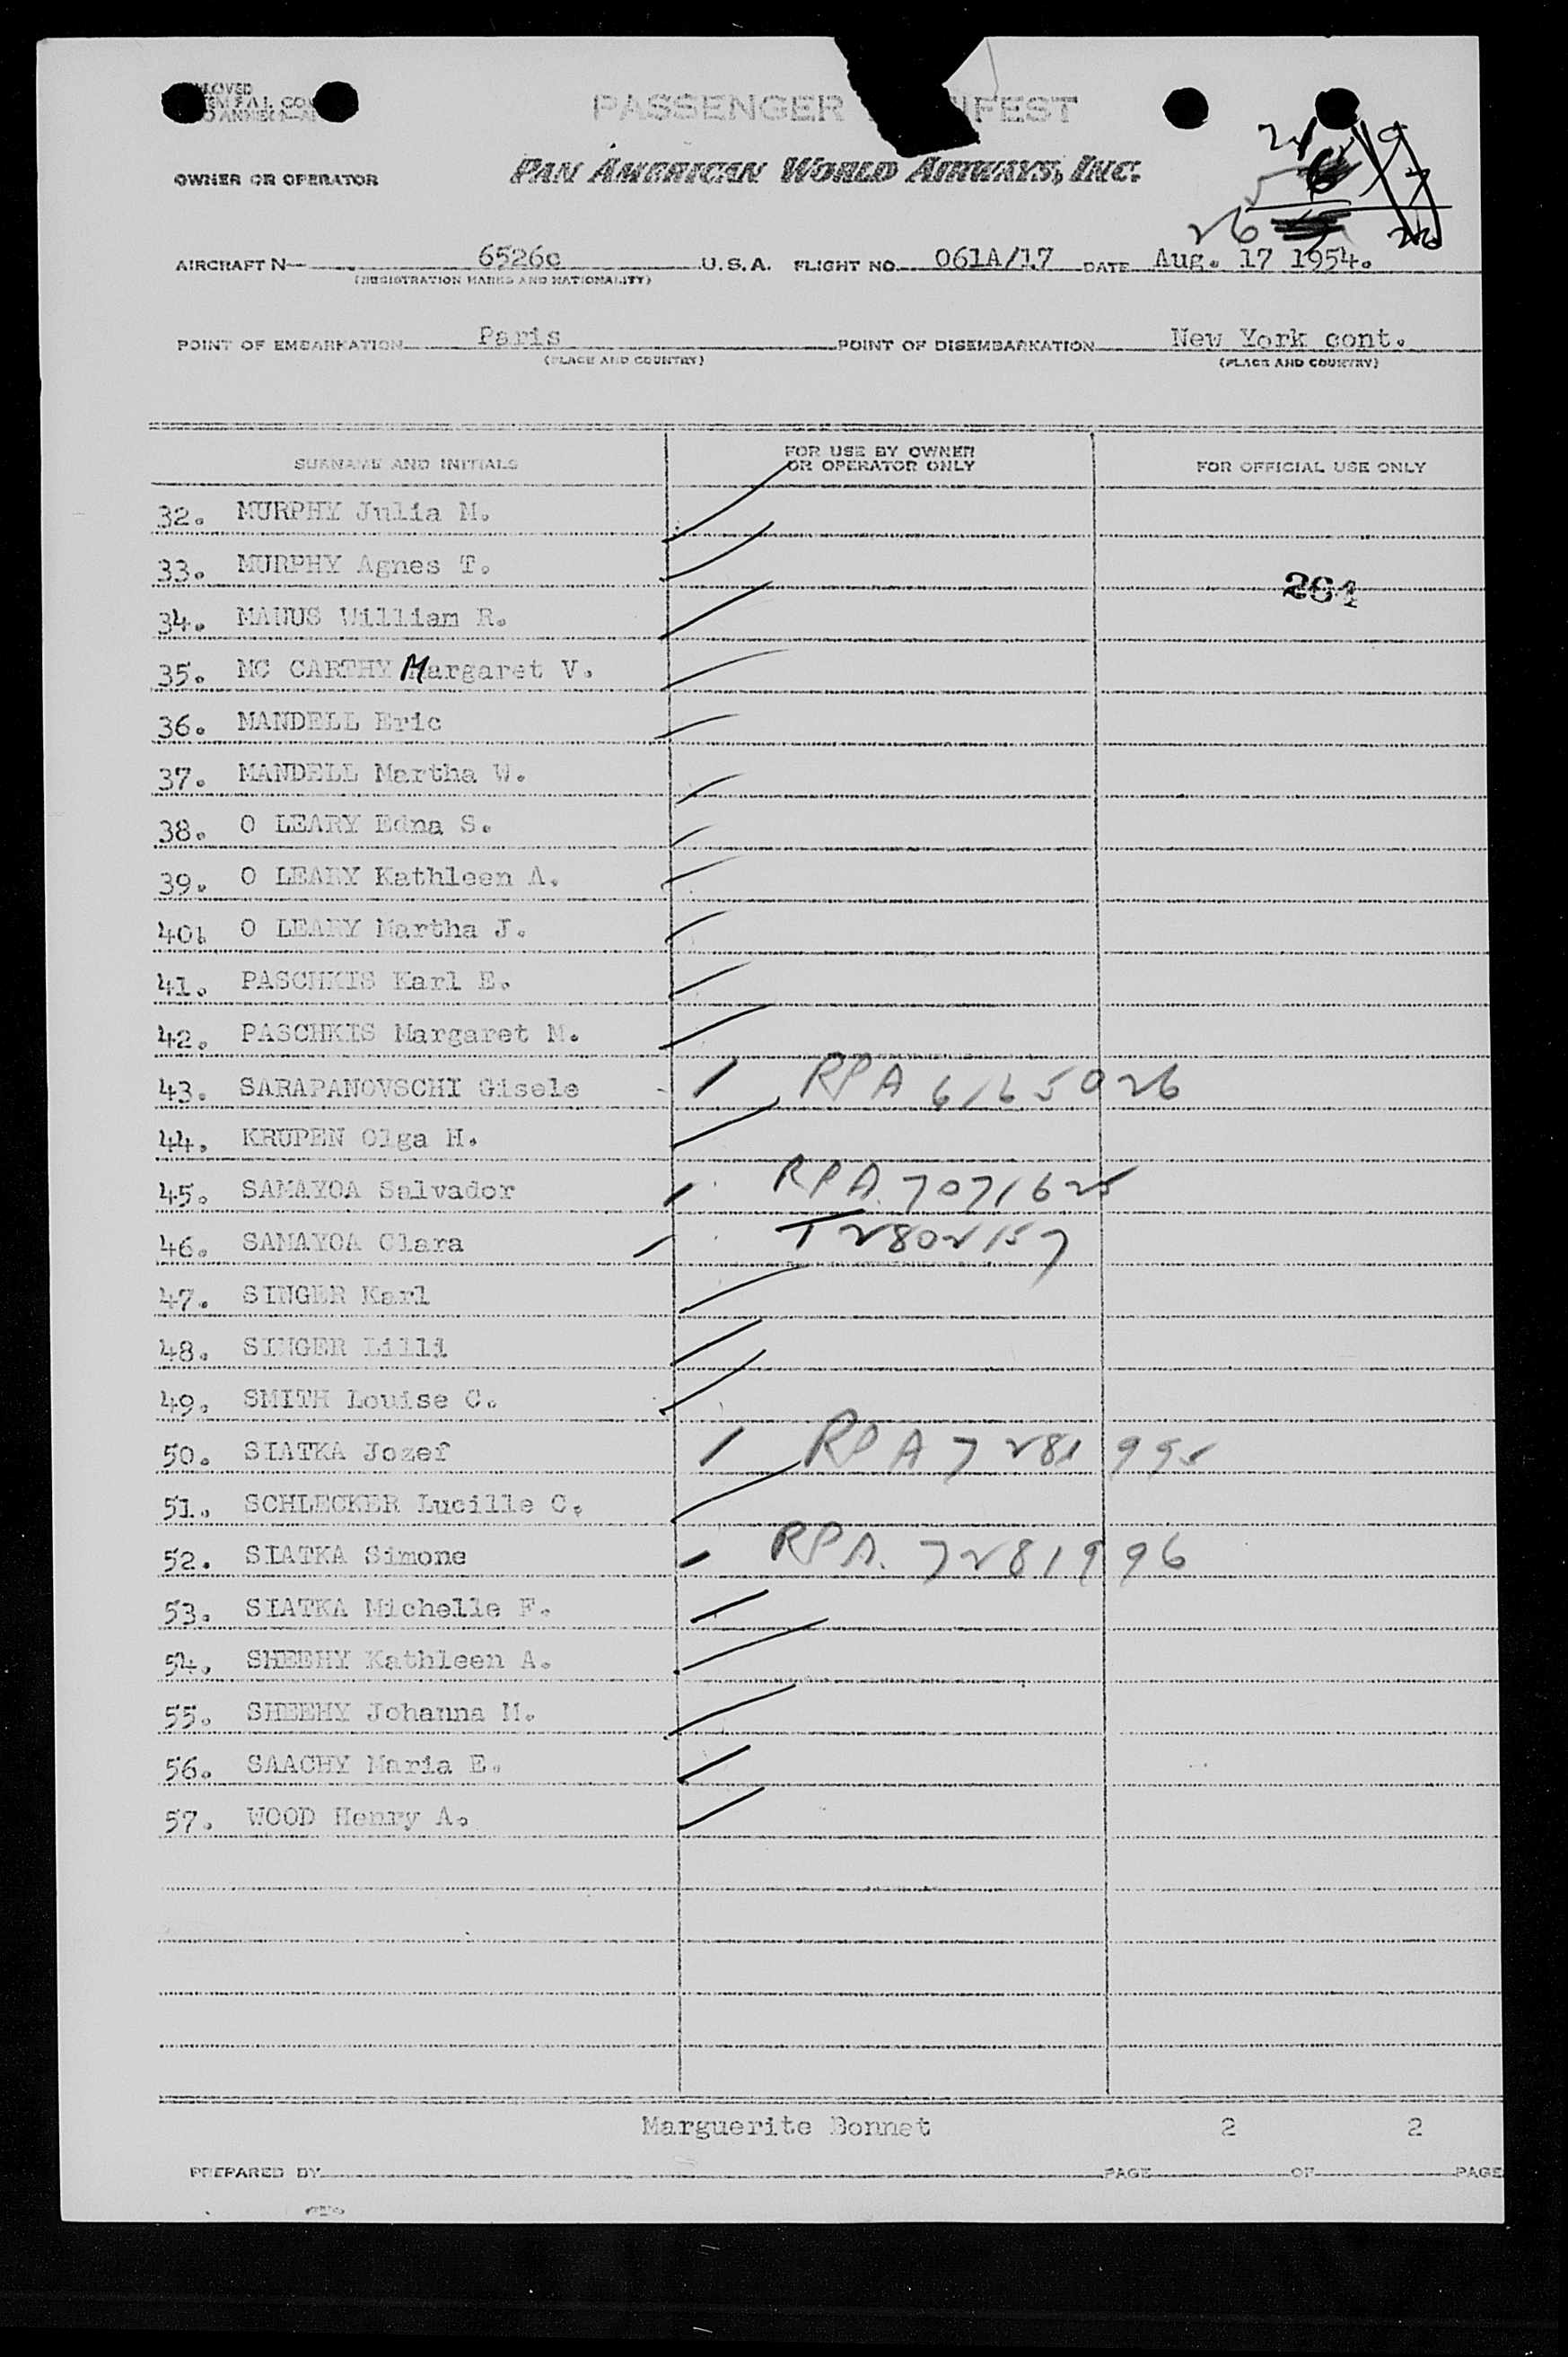 PASSENGER
PAN AMERICAN WORLD AIRWAYS, INC.
OWNER OR OPERATOR
26
AIRCRAFT N— 6526c U.S.A. FLIGHT NO. 061A/17 DATE Aug. 17 1954.
(REGISTRATION MARKS AND NATIONALITY)
POINT OF EMBARKATION Paris POINT OF DISEMBARKATION New York cont.
(PLACE AND COUNTRY) (PLACE AND COUNTRY)
SURNAME AND INITIALS FOR USE BY OWNER OR OPERATOR ONLY FOR OFFICIAL USE ONLY
32. MURPHY Julia M.
33. MURPHY Agnes T.
261
34. William R.
35. MC CARTHY Margaret V.
36. MANDELL Eric
37. MANDELL Martha W.
38. O LEARY Edna S.
39. O LEARY Kathleen A.
40. O LEARY Martha J.
41. PASCHKIS Karl E.
42. PASCHKIS Margaret M.
43. SARAPANOVSCHI Gisele RPA 6165026
44. KRUPEN Olga H.
45. SAMAYOA Salvador RPA 7071625
46. SAMAYOA Clara T2802157
47. SINGER Karl
48. SINGER Lilli
49. SMITH Louise C.
50. SIATKA Jozef RPA 7281995
51. SCHLECKER Lucille C.
52. SIATKA Simone RPA. 7281996
53. SIATKA Michelle F.
54. SHEEHY Kathleen A.
55. SHEEHY Johanna M.
56. SAACHY Maria E.
57. WOOD Henry A.
Marguerite Bonnet 2 2
PREPARED BY PAGE OF PAGE